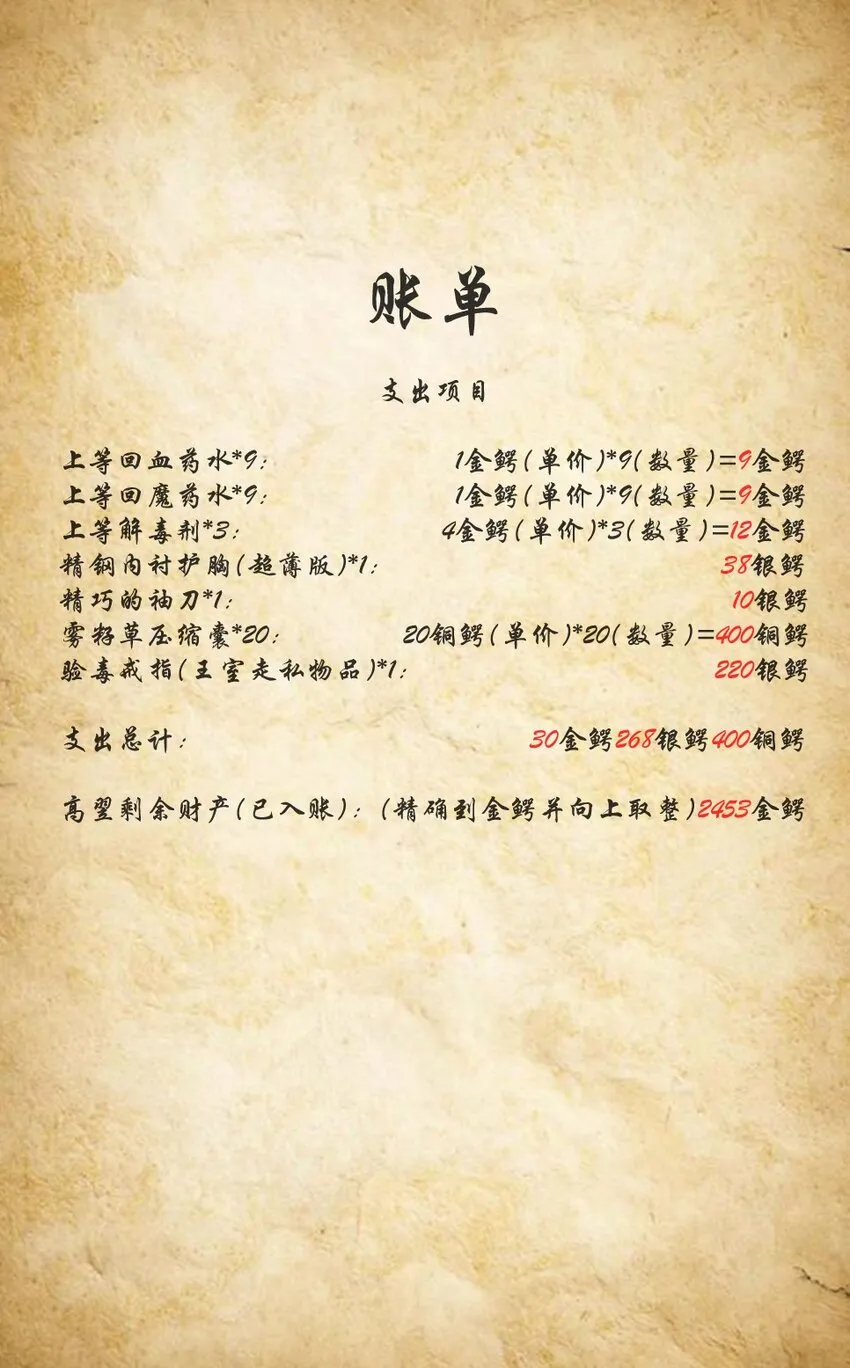 账单
支出项目
上等回血药水*9: 1金鳄(单价)*9(数量)=9金鳄
上等回魔药水*9: 1金鳄(单价)*9(数量)=9金鳄
上等解毒剂*3: 4金鳄(单价)*3(数量)=12金鳄
精钢内衬护胸(超薄版)*1: 38银鳄
精巧的袖刀*1: 10银鳄
雾籽草压缩囊*20: 20铜鳄(单价)*20(数量)=400铜鳄
验毒戒指(王室走私物品)*1: 220银鳄
支出总计: 30金鳄268银鳄400铜鳄
高翌剩余财产(已入账): (精确到金鳄并向上取整)2453金鳄